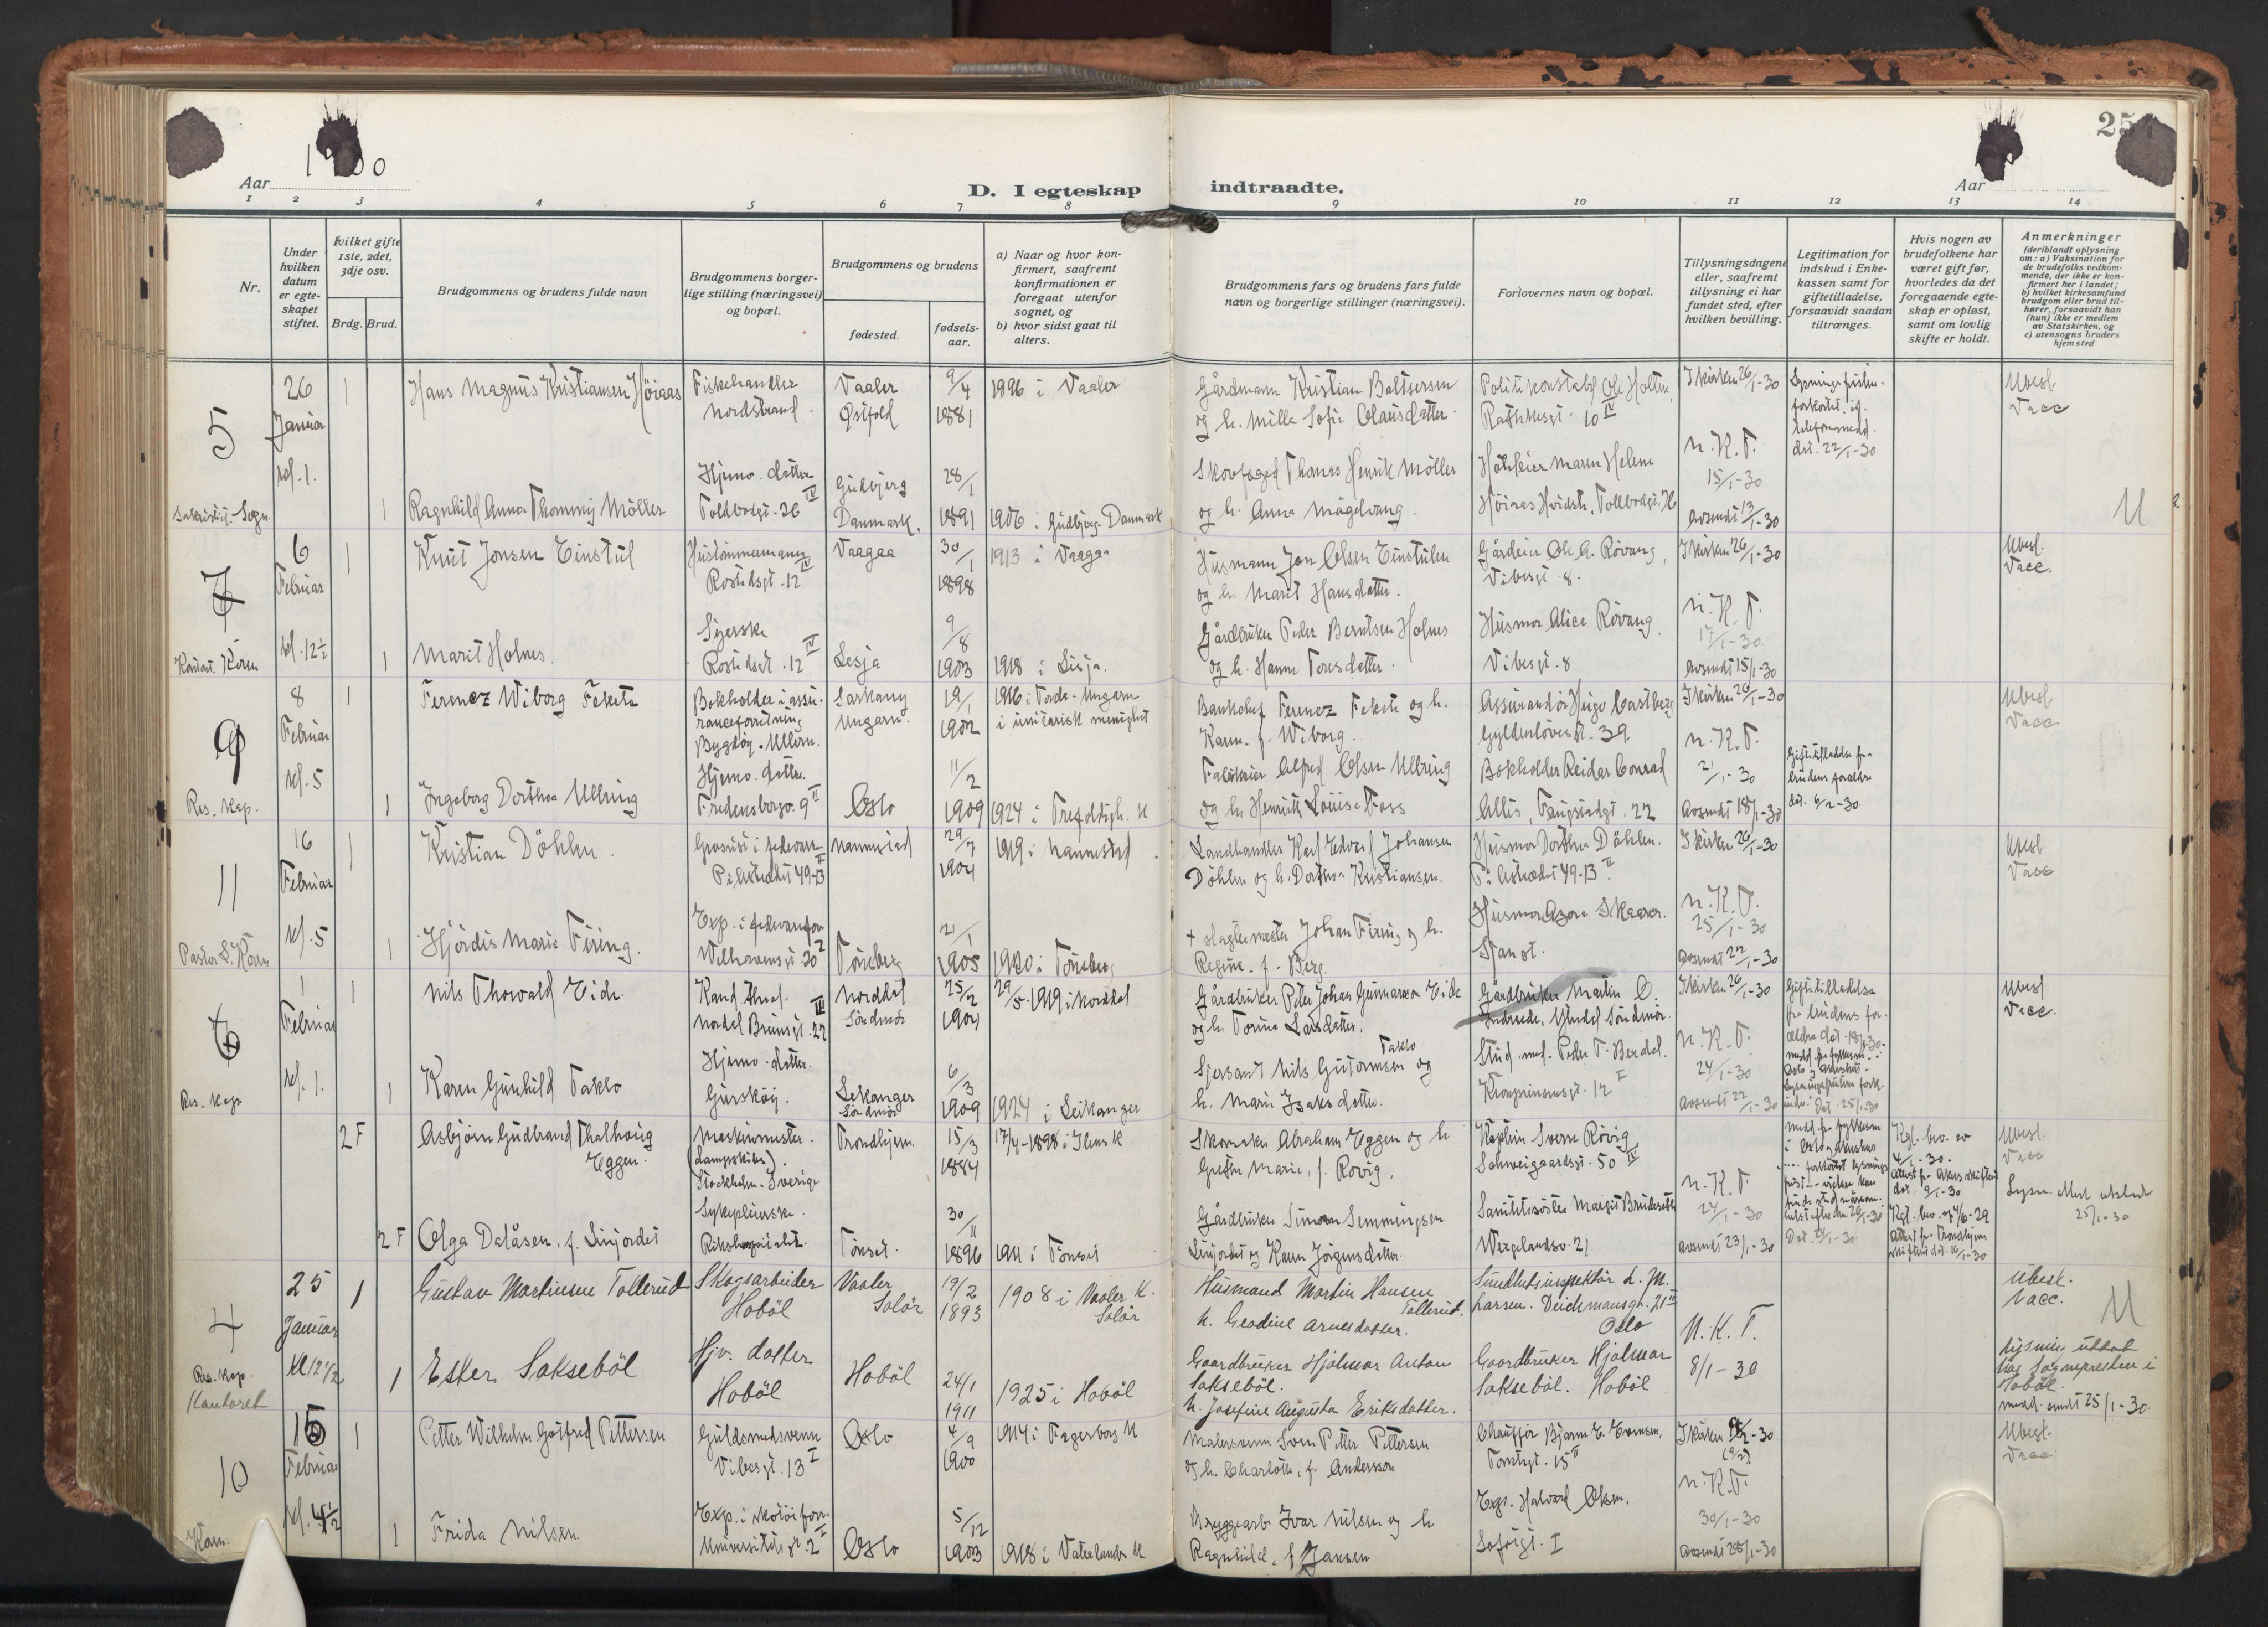 Aar
D. I egteskap indtraadte.
Aar
1 2 3 4 5 6 7 8 9 10 11 12 13 14
Nr.
Under hvilken datum er egteskapet stiftet.
hvilket gifte 1ste, 2det, 3dje osv.
Brdg. Brud.
Brudgommens og brudens fulde navn
Brudgommens borgerlige stilling (næringsvei) og bopæl.
Brudgommens og brudens
fødested.
fødsels-aar.
a) Naar og hvor konfirmert, saafremt konfirmationen er foregaat utenfor sognet, og
b) hvor sidst gaat til alters.
Brudgommens fars og brudens fars fulde navn og borgerlige stillinger (næringsvei).
Forlovernes navn og bopæl.
Tillysningsdagene eller, saafremt tillysning ei har fundet sted, efter hvilken bevilling.
Legitimation for indskud i Enkekassen samt for giftetilladelse, forsaavidt saadan tiltrænges.
Hvis nogen av brudefolkene har været gift før, hvorledes da det foregaaende egteskap er opløst, samt om lovlig skifte er holdt.
Anmerkninger
(deriblandt oplysning om: a) Vaksination for de brudefolks vedkommende, der ikke er konfirmert her i landet; b) hvilket kirkesamfund brudgom eller brud tilhører, forsaavidt han (hun) ikke er medlem av Statskirken, og c) utensogns bruders hjemsted
5
26 Januar kl. 1.
1 Hans Magnus Kristiansen Höiaas
Fiskehandler Nordstrand
Vaaler Østfold
9/4 1881
1896 i Vaaler
Gårdmann Kristian Baltsersen
og h. Milla Sofie Olausdatter
Politikonstabel Ole Holten
10 IV
I kirken 26/1-30
dat. 22/1-30
Ubesl. Vacc
1 Ragnhild Anna Thommy Möller
Hjemv. datter Toldbodgt. 36 IV
Gudbjerg Danmark.
28/1 1891
1906 i Gudbjerg Danmark
Thomas Henrik Möller
og h. Anna Mögelvang.
Maren Helene
N.K.T.
15/1-30
Avsendt 13/1-30
7
6 Februar kl. 12½
1 Knut Jonsen Einstul
Hustömmermann Rostedsgt. 12 IV
Vaagaa
30/1 1898
1913 i Vaagaa
Husmann Jon Olsen Einstulen
og h. Marit Hansdatter.
Gårdeier Ole A. Røvang,
Vibesgt. 8.
I kirken 26/1-30
Ubesl. Vacc.
1 Marit Holnes
Syerske Rostedsgt. 12 IV
Lesja
9/8 1903
1918 i Lesja.
Gårdbruker Peder Berntsen Holnes
og h. Hanna Toresdatter.
Husmor Alice Røvang.
Vibesgt. 8
N.K.T.
17/1-30.
Avsendt 15/1-30
9
8 Februar kl. 5
Res. kap.
1 Ferencz Wiborg Fekete
Bokholder i assuranceforretning Bygdöy. Ullern.
Sarkany Ungarn.
19/1 1902
1916 i Torda - Ungarn i unitarisk menighet
Bankchef Ferencz Fekete og h.
Karen f. Wiborg.
Assurandör Hugo Castberg
Gyldenlövesgt. 39.
I kirken 26/1-30
Ubesl. Vacc
1 Ingeborg Dorthea Ullring
Hjemv. datter. Fredensborgv. 9 II
Oslo
11/2 1909
1924 i Trefoldigh. K
Fabrikeier Alfred Olsen Ullring
og h. Henriette Louise Foss
Bokholder Reidar Conrad
Allis,
N.K.T.
21/1-30
Avsendt 18/1-30
Giftetilladelse fra brudens foreldre dat. 6/2-30
11
16 Februar kl. 5
1 Kristian Döhlen.
Grosist i Pilestrædet 49-13 II
Nannestad
29/7 1904
1919 i Nannestad
Landhandler Karl Edvard Johansen
Döhlen og h. Dorthea Kristiansen.
Husmor Dorthea Döhlen.
Pilestrædet 49-13 II
I kirken 26/1-30
Ubesl Vacc
1 Hjördis Marie Firing.
Exp. i Welhavensgt. 30
Tönsberg
21/1 1905
1920 i Tönsberg
+ slagtermester Johan Firing og h.
Regine f. Berg.
Skaarer.
N.K.T.
25/1-30
Avsendt 22/1-30
6
1 Februar kl. 1.
Res. kap
1 Nils Thorvald Eide
Nordal Brunsgt. 22 III
Norddal Söndmör
25/2 1904
29/5-1919 i Norddal
Gårdbruker Peter Johan Gunnarson Eide
og h. Torine Larsdatter.
Gårdbruker Martin O.
Söndmör.
I kirken 26/1-30
Giftetilladelse fra brudens foreldre dat. 18/1-30
Ubesl Vacc.
1 Karen Gunhild Taklo
Hjemv. datter. Gurskøy.
Leikanger Söndmör
6/3 1909
1924 i Leikanger
Sjersant Nils Guttormsen Taklo og
h. Marie Isaksdatter.
Stud. med. Peder T. Berdal.
Kronprinsensgt. 12 I
N.K.T.
24/1-30
Avsendt 22/1-30
2 F Asbjörn Gudbrand Thalhaug Eggen.
Maskinmester. (Dampskibs). Stockholm. Sverige
Trondhjem
15/3 1884
17/4-1898 i Ilens K
Abraham Eggen og h
Grethe Marie, f. Rovig.
Kaptein Sverre Rövig
Schweigaardsgt. 50 IV
Kgl. bev. av 4/1-30.
Ubesl. Vacc
2 F Olga Dalåsen, f. Linjordet
Sykepleierske. Rikshospitalet.
Tönset.
30/11 1896
1911 i Tönset
Gårdbruker Simen Semmingsen
Linjordet og Karen Jörgensdatter.
Sanitetssöster Margit
Wergelandsv. 21
N.K.T
24/1-30
Avsendt 23/1-30
Kgl. bev. av 4/6-29
25/1-30
4
25 Januar Kl 12 1/2
Res. kap. Kontoret
1 Gustav Martinsen Tollerud
Skogsarbeider Hobøl
Vaaler Solør
19/2 1893
1908 i Vaaler K. Solör
Husmand Martin Hansen Tollerud.
h. Geadine Arnesdatter.
Sundhetsinspektör L. M.
Larsen. Deichmansgt. 21 II Oslo
Ubesl. Vacc.
1 Ester Saksebøl
Hjv. datter Hobøl
Hobøl
24/1 1911
1925 i Hobøl
Gaardbruker Hjalmar Anton
Saksebøl.
h. Josefine Augusta Eriksdatter.
Gaardbruker Hjalmar
Saksebøl. Hobøl
N.K.T.
8/1-30
Lysning uttat hos sognepresten i Hobøl.
medd. sendt 25/1-30.
10
15 Februar kl. 4½
1 Petter Wilhelm Gotfred Pettersen
Guldsmedsvenn Vibesgt. 13 I
Oslo
4/9 1900
1914 i Fagerborg K
Malersvenn Sven Petter Pettersen
og h. Charlotte, f. Andersson
Chauffør Bjarne E. Evensen,
Tomtegt. 15 II
Ubesl. Vacc
1 Frida Nilsen
Exp. i skotöiforr. Universitetsgt. 2
Oslo
5/12 1903
1918 i Vaterlands K
Bryggearb Ivar Nilsen og h
Ragnhild, f. Jansen
Exp. Halvard Olsen.
Sofiegt. I
N.K.T.
30/1-30
Avsendt 28/1-30